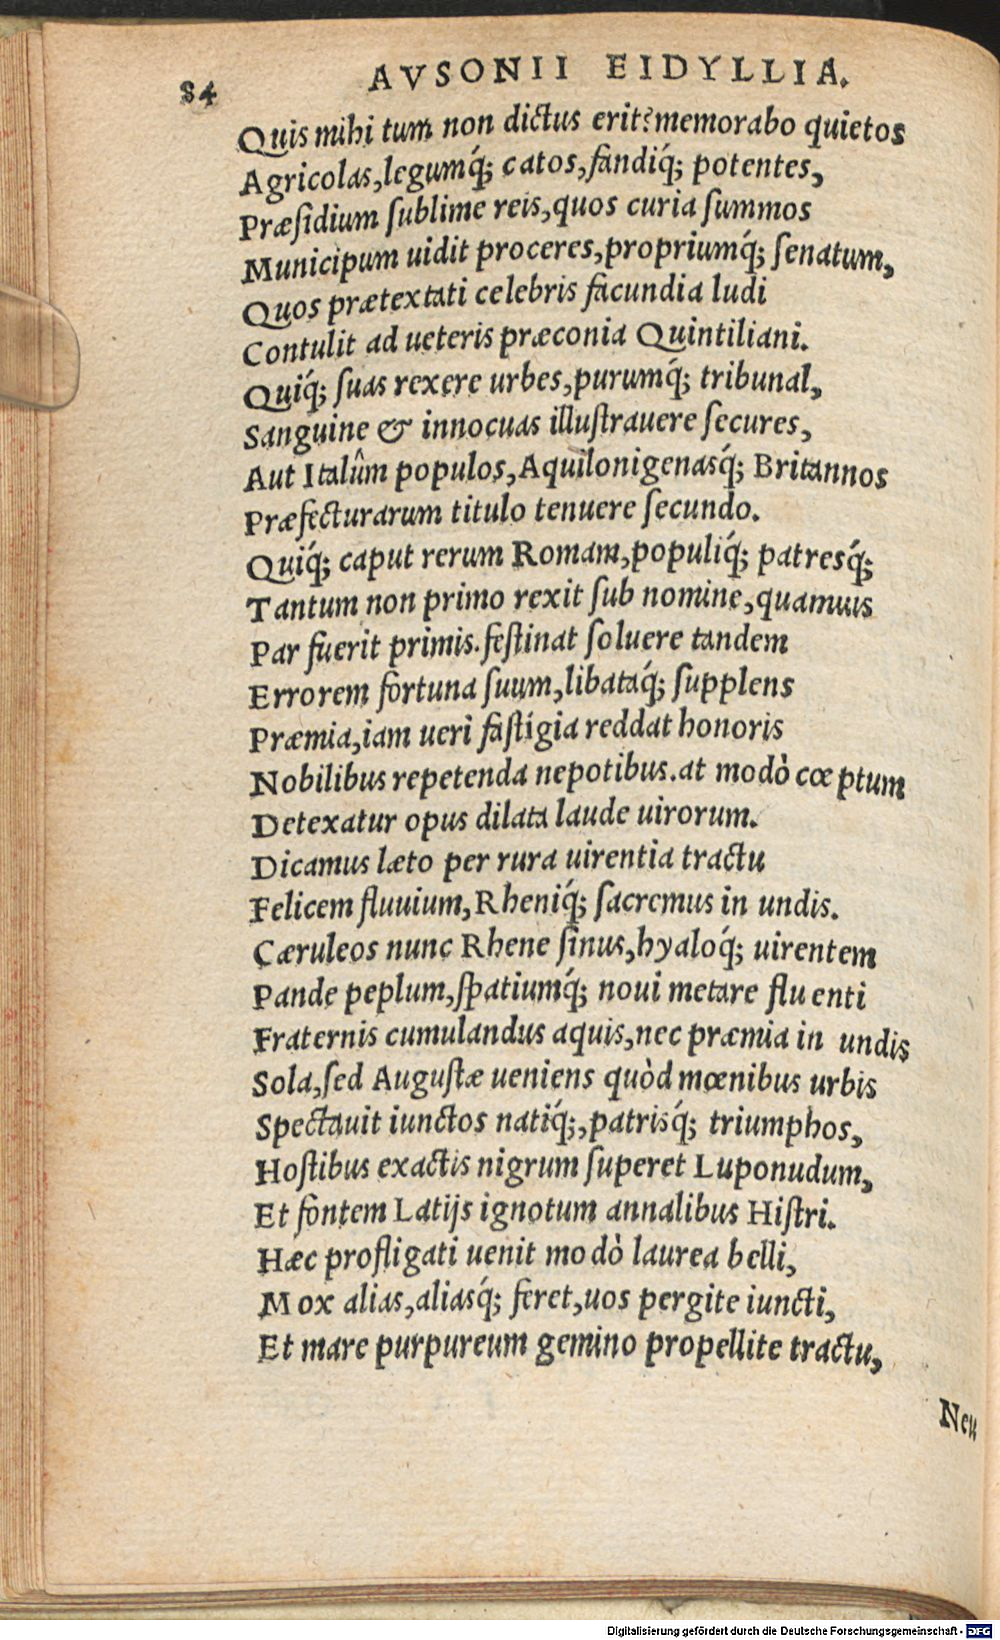 84 AVSONII EIDYLLIA.
Quis mihi tum non dictus erit? memorabo quietos
Agricolas, legumq́; catos, fandiq́; potentes,
Præſidium ſublime reis, quos curia ſummos
Municipum uidit proceres, propriumq́; ſenatum,
Quos prætextati celebris facundia ludi
Contulit ad ueteris præconia Quintiliani.
Quiq́; ſuas rexere urbes, purumq́; tribunal,
Sanguine & innocuas illuſtrauere ſecures,
Aut Italûm populos, Aquilonigenasq́; Britannos
Præfecturarum titulo tenuere ſecundo.
Quiq́; caput rerum Romam, populiq́; patresq́;
Tantum non primo rexit ſub nomine, quamuis
Par fuerit primis. feſtinat ſoluere tandem
Errorem fortuna ſuum, libataq́; ſupplens
Præmia, iam ueri faſtigia reddat honoris
Nobilibus repetenda nepotibus. at modò cœptum
Detexatur opus dilata laude uirorum.
Dicamus læto per rura uirentia tractu
Felicem fluuium, Rheniq́; ſacremus in undis.
Cæruleos nunc Rhene ſinus, hyaloq́; uirentem
Pande peplum, ſpatiumq́; noui metare fluenti
Fraternis cumulandus aquis, nec præmia in undis
Sola, ſed Auguſtæ ueniens quòd mœnibus urbis
Spectauit iunctos natiq́;, patrisq́; triumphos,
Hoſtibus exactis nigrum ſuperet Luponudum,
Et fontem Latijs ignotum annalibus Hiſtri.
Hæc profligati uenit modò laurea belli,
Mox alias, aliasq́; feret, uos pergite iuncti,
Et mare purpureum gemino propellite tractu,
Neu
Digitalisierung gefördert durch die Deutsche Forschungsgemeinschaft - DFG